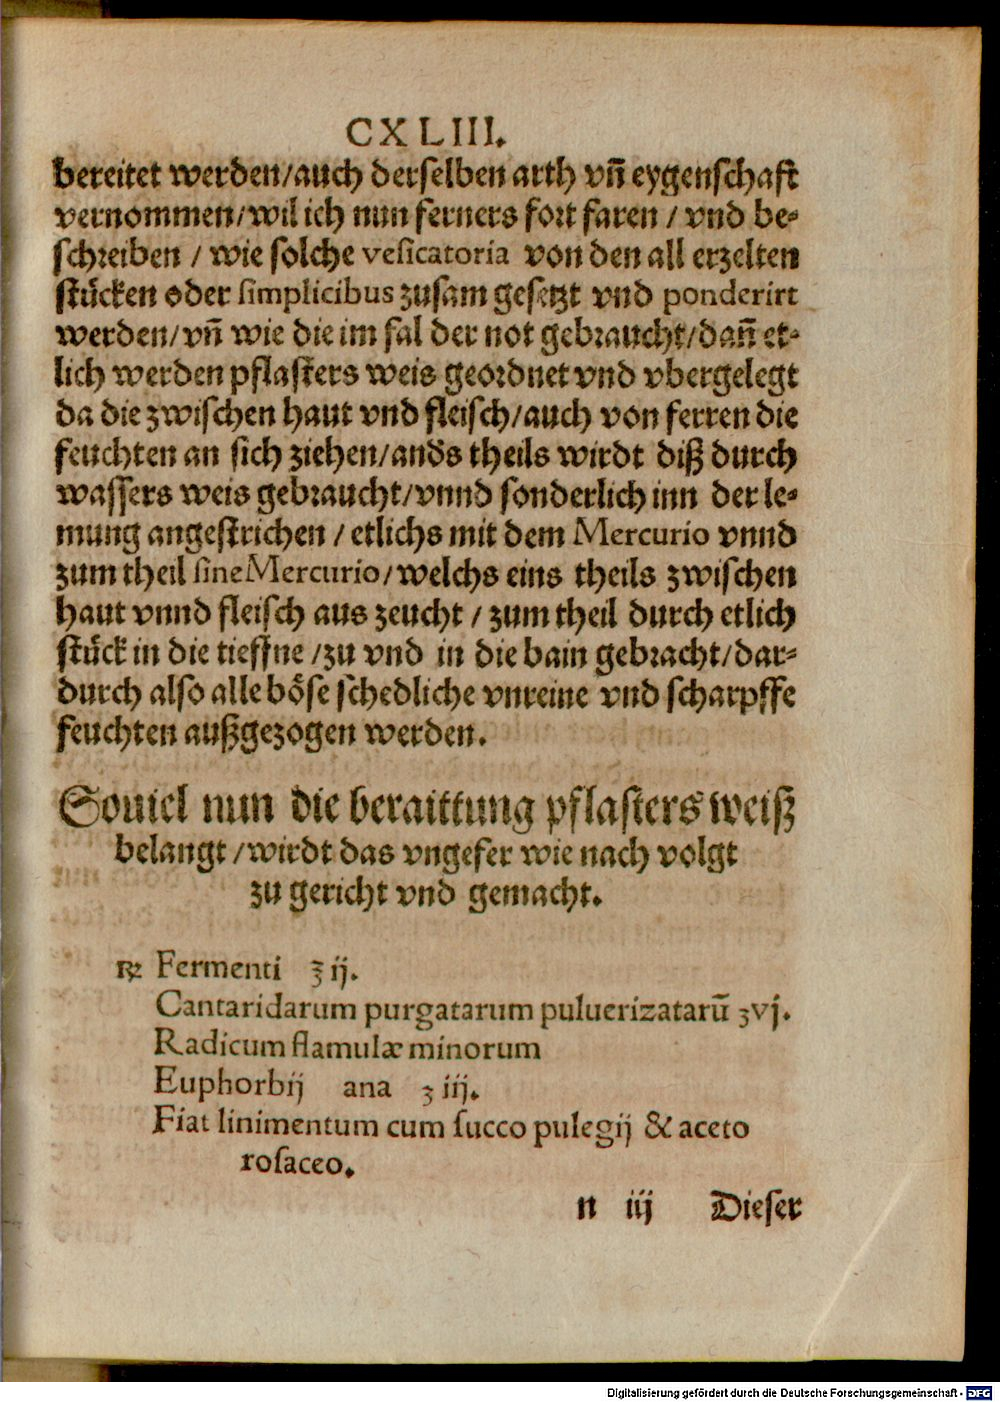 CXLIII.
bereitet werden/auch derselben arth vñ eygenschafft
vernommen/wil ich nun ferners fort faren / vnd be-
schreiben / wie solche vesicatoria von den all erzelten
stücken oder simplicibus zusam gesetzt vnd ponderirt
werden/vñ wie die im fal der not gebraucht/dañ et-
lich werden pflasters weis geordnet vnd vbergelegt
da die zwischen haut vnd fleisch/auch von ferren die
feuchten an sich ziehen/anďs theils wirdt diß durch
wassers weis gebraucht/vnnd sonderlich inn der le-
mung angestrichen / etlichs mit dem Mercurio vnnd
zum theil sine Mercurio/welchs eins theils zwischen
haut vnnd fleisch aus zeucht / zum theil durch etlich
stück in die tieffne/zu vnd in die bain gebracht/dar-
durch also alle böse schedliche vnreine vnd scharpffe
feuchten außgezogen werden.
Souiel nun die beraittung pflasters weiß
belangt/wirdt das vngefer wie nach volgt
zu gericht vnd gemacht.
℞ Fermenti ℥ ij.
Cantaridarum purgatarum puluerizatarū ʒvj.
Radicum flamulæ minorum
Euphorbij ana ʒ iij.
Fiat linimentum cum succo pulegij & aceto
rosaceo.
n iij Dieser
Digitalisierung gefördert durch die Deutsche Forschungsgemeinschaft - DFG